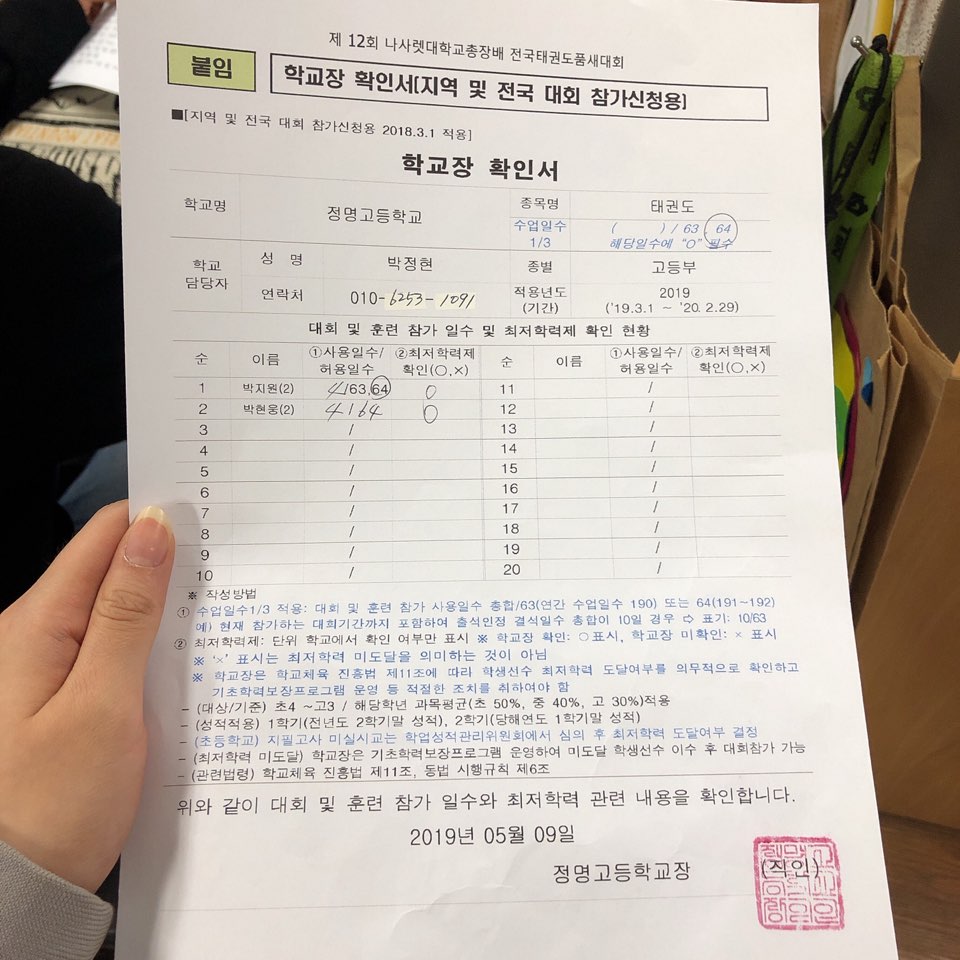 제 12회 나사렛대학교총장배 전국태권도품새대회
붙임 학교장 확인서(지역 및 전국 대회 참가신청용)
■[지역 및 전국 대회 참가신청용 2018.3.1 적용]
학교장 확인서
학교명 정명고등학교 종목명 태권도
수업일수 1/3 ( ) / 63, 64
해당일수에 "O" 필수
학교 담당자 성 명 박정현 종별 고등부
연락처 010-6253-1091 적용년도 (기간) 2019 ('19.3.1 ~ '20.2.29)
대회 및 훈련 참가 일수 및 최저학력제 확인 현황
순 이름 ①사용일수/허용일수 ②최저학력제 확인(○,×) 순 이름 ①사용일수/허용일수 ②최저학력제 확인(○,×)
1 박지원(2) 4/63,64 O 11 /
2 박현웅(2) 4/64 O 12 /
3 / 13 /
4 / 14 /
5 / 15 /
6 / 16 /
7 / 17 /
8 / 18 /
9 / 19 /
10 / 20 /
※ 작성방법
① 수업일수1/3 적용: 대회 및 훈련 참가 사용일수 총합/63(연간 수업일수 190) 또는 64(191~192)
예) 현재 참가하는 대회기간까지 포함하여 출석인정 결석일수 총합이 10일 경우 ⇨ 표기: 10/63
② 최저학력제: 단위 학교에서 확인 여부만 표시 ※ 학교장 확인: ○표시, 학교장 미확인: × 표시
※ '×' 표시는 최저학력 미도달을 의미하는 것이 아님
※ 학교장은 학교체육 진흥법 제11조에 따라 학생선수 최저학력 도달여부를 의무적으로 확인하고
기초학력보장프로그램 운영 등 적절한 조치를 취하여야 함
- (대상/기준) 초4 ~고3 / 해당학년 과목평균(초 50%, 중 40%, 고 30%)적용
- (성적적용) 1학기(전년도 2학기말 성적), 2학기(당해연도 1학기말 성적)
- (초등학교) 지필고사 미실시교는 학업성적관리위원회에서 심의 후 최저학력 도달여부 결정
- (최저학력 미도달) 학교장은 기초학력보장프로그램 운영하여 미도달 학생선수 이수 후 대회참가 가능
- (관련법령) 학교체육 진흥법 제11조, 동법 시행규칙 제6조
위와 같이 대회 및 훈련 참가 일수와 최저학력 관련 내용을 확인합니다.
2019년 05월 09일
정명고등학교장 (직인)